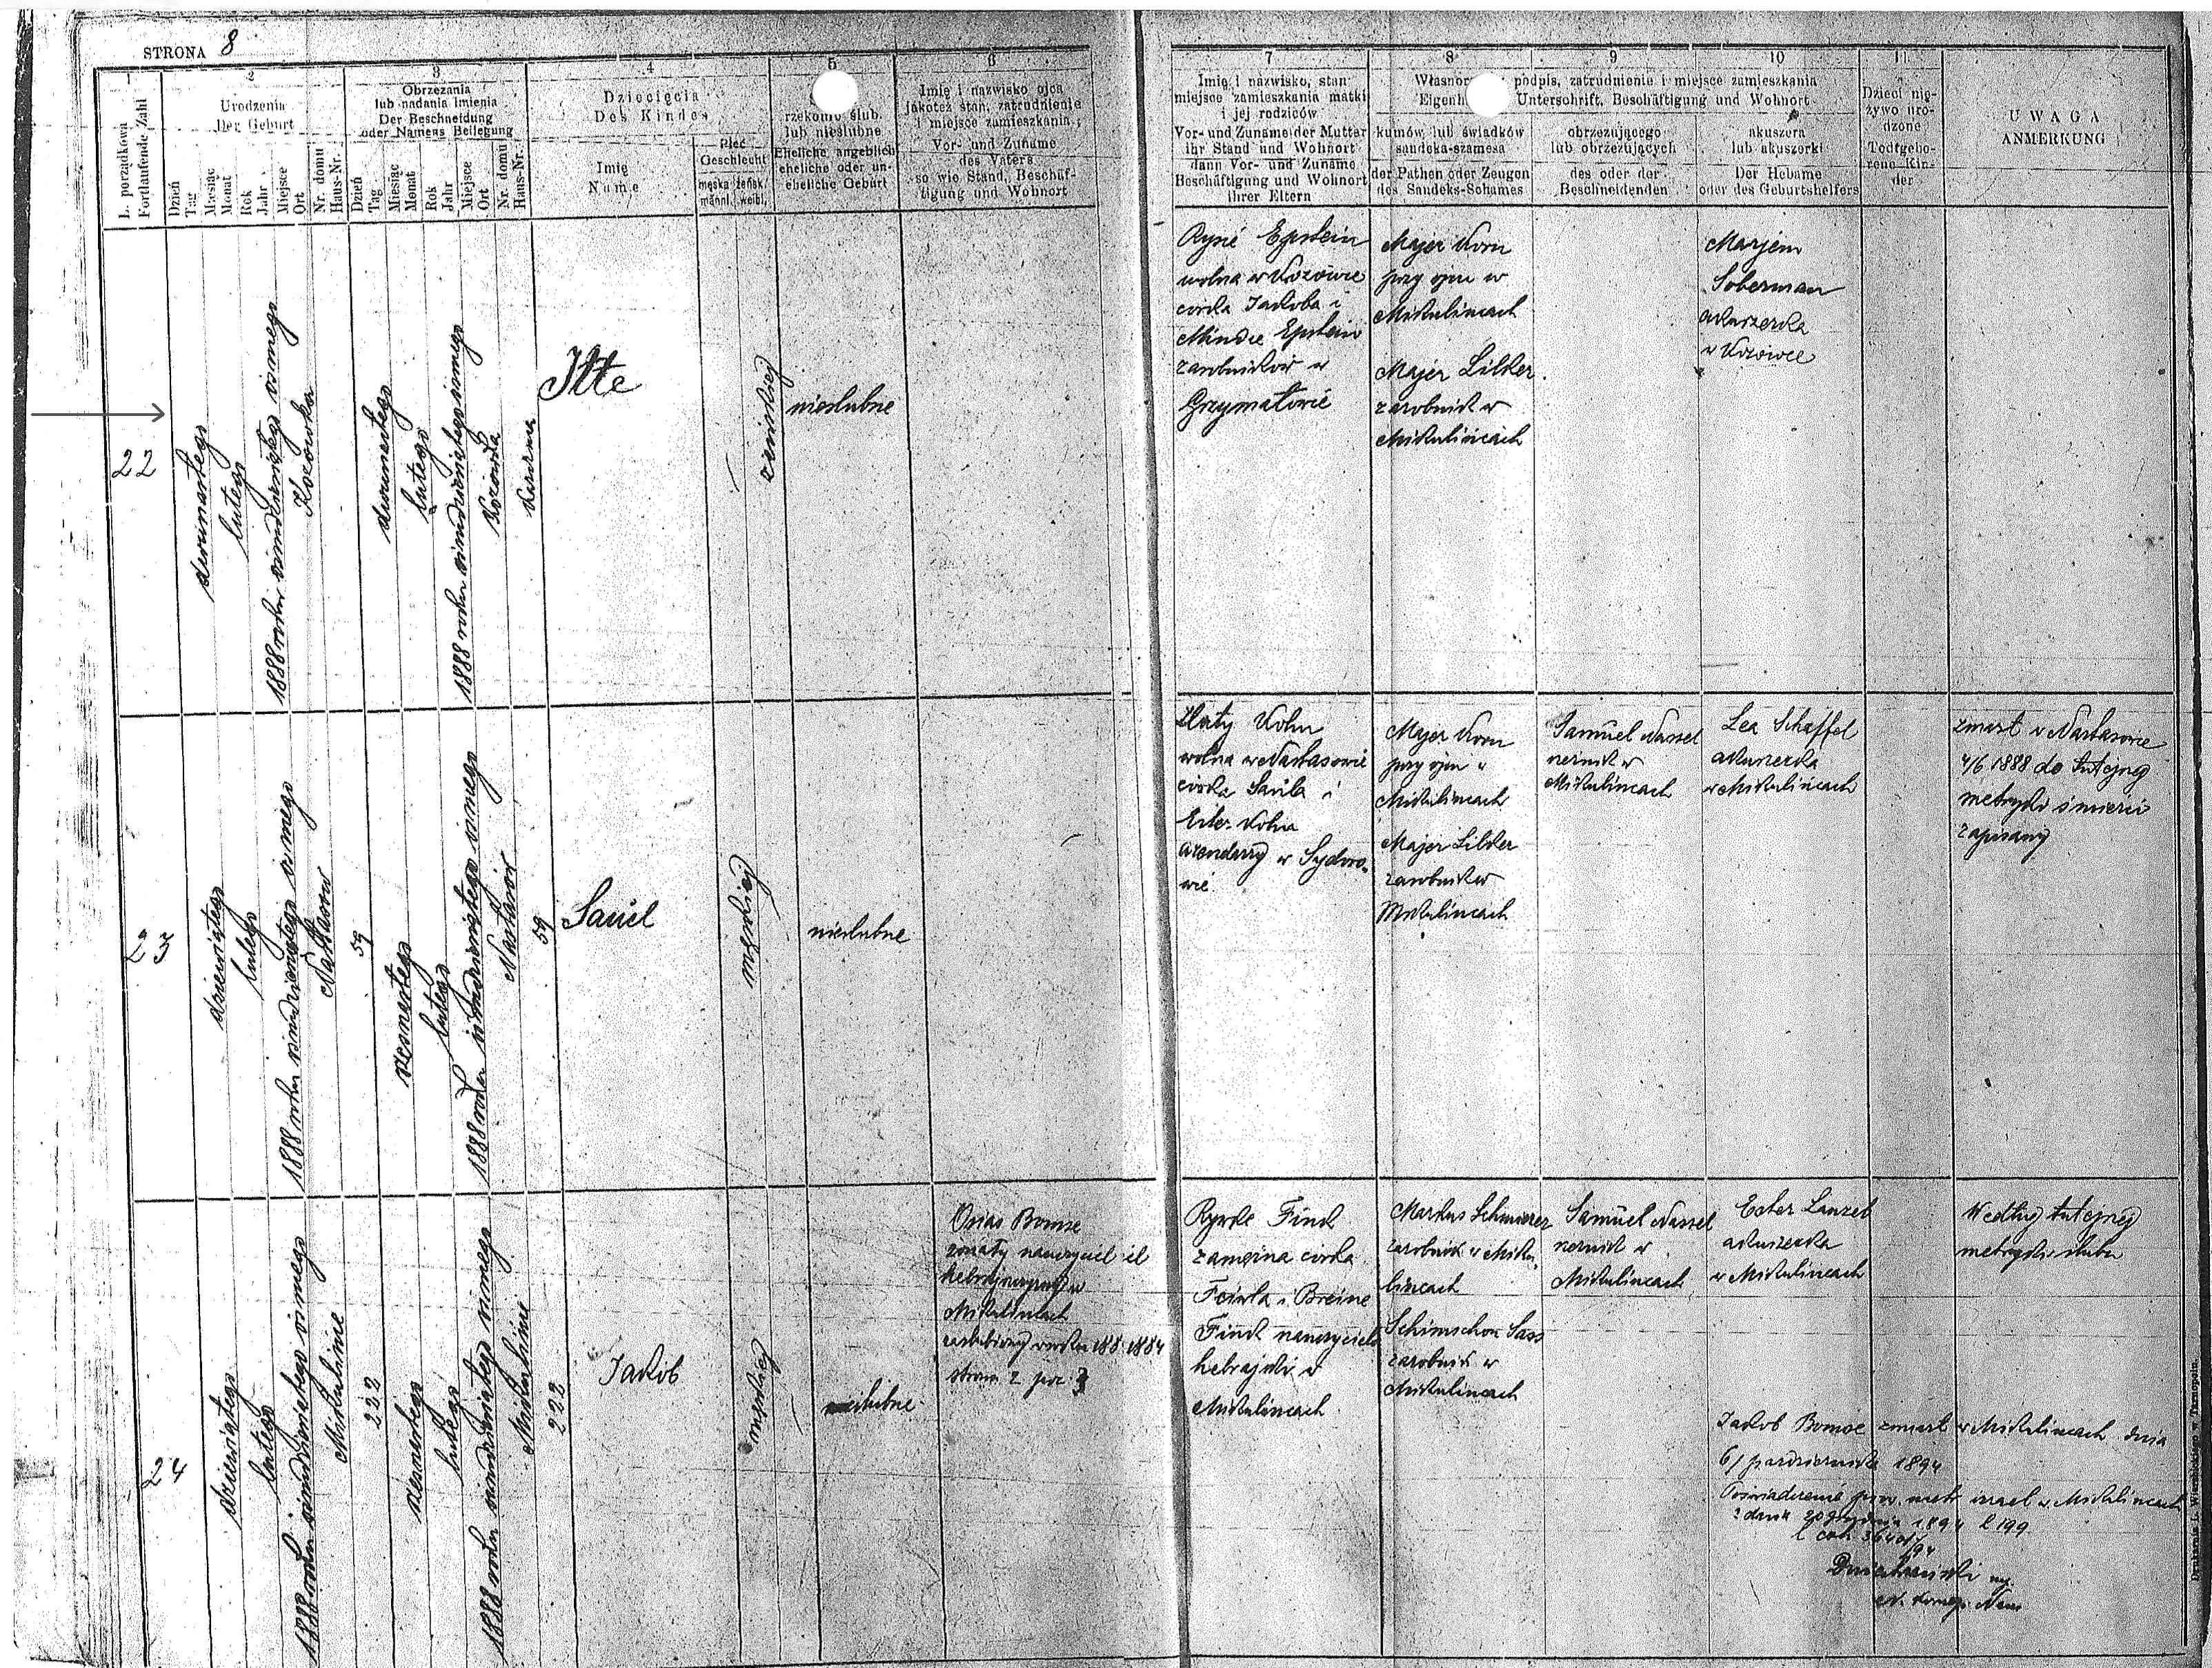 STRONA 8
1
L. porządkowa
Fortlaufende Zahl
2
Urodzenia
Der Geburt
Dzień
Tag
Miesiąc
Monat
Rok
Jahr
Miejsce
Ort
Nr. domu
Haus-Nr.
3
Obrzezania
lub nadania Imienia
Der Beschneidung
oder Namens Beilegung
Dzień
Tag
Miesiąc
Monat
Rok
Jahr
Miejsce
Ort
Nr. domu
Haus-Nr.
4
Dziecięcia
Des Kindes
Imię
Name
Płeć
Geschlecht
męska
männl.
żeńsk.
weibl.
5
rzekomo ślub.
lub nieślubne
Eheliche angeblich
eheliche oder un-
eheliche Geburt
6
Imię i nazwisko ojca
jakoteż stan, zatrudnienie
i miejsce zamieszkania
Vor- und Zuname
des Vaters
so wie Stand, Beschäf-
tigung und Wohnort
7
Imię i nazwisko, stan
miejsce zamieszkania matki
i jej rodziców
Vor- und Zuname der Mutter
ihr Stand und Wohnort
dann Vor- und Zuname
Beschäftigung und Wohnort
ihrer Eltern
8 9 10
podpis, zatrudnienie i miejsce zamieszkania
Unterschrift, Beschäftigung und Wohnort
kumów, lub świadków
sandeka-szamesa
der Pathen oder Zeugen
des Sandeks-Schames
obrzezującego
lub obrzezujących
des oder der
Beschneidenden
akuszera
lub akuszerki
Der Hebame
oder des Geburtshelfers
11
Dzieci nie-
żywo uro-
dzone
Todtgebo-
rene Kin-
der
UWAGA
ANMERKUNG
22
dwunastego
lutego
1888 roku ośmdziesiątego ósmego
Kozówka
dwunastego
lutego
1888 roku ośmdziesiątego ósmego
Kozówka
Itte
żeńskiej
nieślubne
Epstein
wolna w Kozówce
córka Jakoba i
Mindie Epstein
zarobników w
Grzymałowie
Majer Korn
przy ojcu w
Mikulińcach
Majer Lilker
zarobnik w
Mikulińcach
Marjem
Soberman
akuszerka
w Kozówce
23
dziewiątego
lutego
1888 roku ośmdziesiątego ósmego
Nastasów
59
szesnastego
lutego
1888 roku ośmdziesiątego ósmego
Nastasów
59
Saul
męskiej
nieślubne
Złaty Kohn
wolna w Nastasowie
córka Saula i
Ester Kohn
arendarzy w Sydoro-
wie
Majer Korn
przy ojcu w
Mikulińcach
Majer Lilker
zarobnik w
Mikulińcach
Samuel Nassel
rzeźnik w
Mikulińcach
Lea Schaffel
akuszerka
w Mikulińcach
zmarł w Nastasowie
4/6 1888 do tutejszej
metryki śmierci
zapisany
24
dziewiątego
lutego
1888 roku ośmdziesiątego ósmego
Mikulińce
222
szesnastego
lutego
1888 roku ośmdziesiątego ósmego
Mikulińce
222
Jakób
męskiej
ślubne
Osias Bomse
żonaty nauczyciel
w
Mikulińcach
1884
strona 2 poz 3
Fink
zamężna córka
Feiwla i Breine
Fink nauczyciela
hebrajski w
Mikulińcach
Markus Schmierer
zarobnik w Miku-
lińcach
Schimschon Sass
zarobnik w
Mikulińcach
Samuel Nassel
rzeźnik w
Mikulińcach
Ester Lanzet
akuszerka
w Mikulińcach
Według tutejszej
metryki ślubu
Jakob Bomse zmarł w Mikulińcach dnia
6/ października 1894
Poświadczenie prow. metr. izrael w Mikulińcach
z dnia 20 grudnia 1894 l 199
Drukarnia L. Wierzbickiego w Tarnopolu.